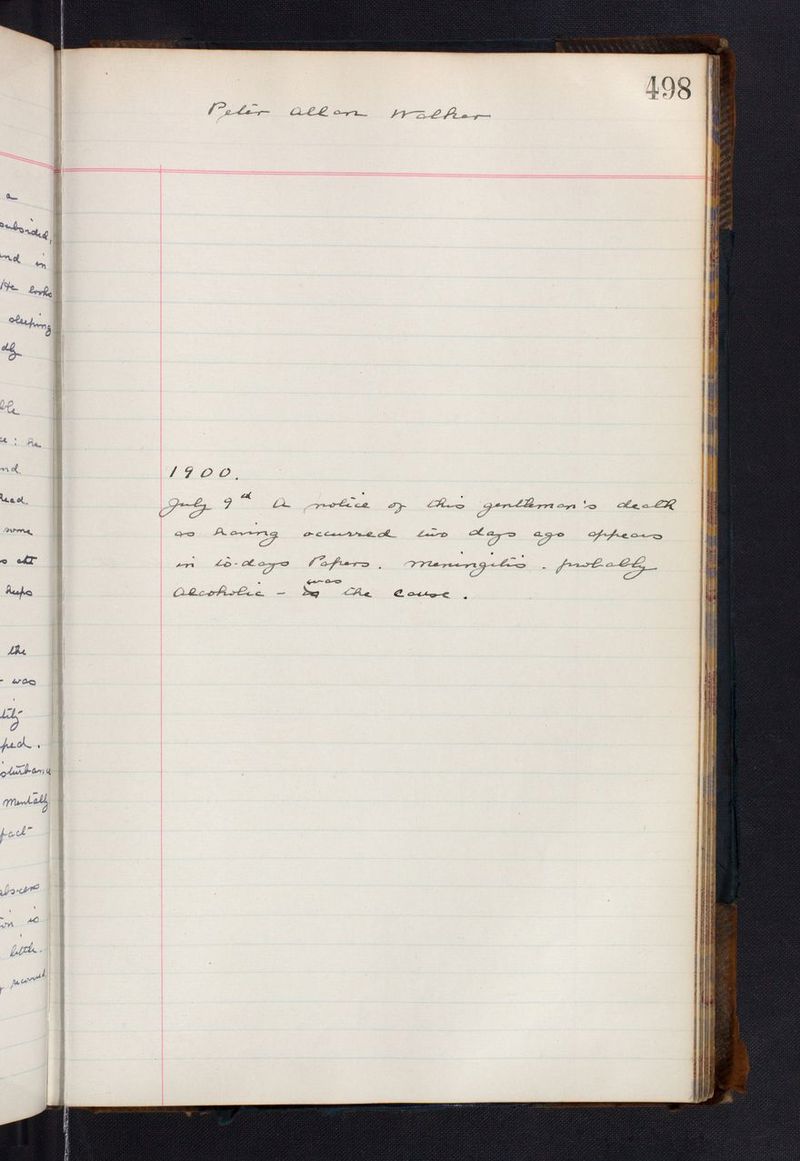 498
Peter Allan Walker
a
subsided,
and in
He looks
sleeping
dly
ble
ce: he
nd
head.
some
keeps
the
- was
tity
ped.
isturbance
mentally
fact
abscess
ion is
little.
1900.
July 9th A notice of this gentleman's death
as having occurred two days ago appears
in to-days Papers. Meningitis. probably
Alcoholic - is was the cause.